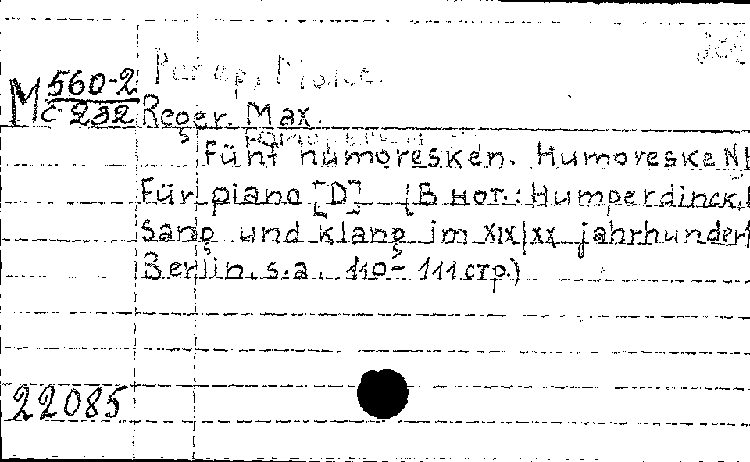 Регер, Макс.
М 560-2
с 232
Reger. Max.
Fünf humoresken. Humoreske N1
Für piano [D] (В нот.: Humperdinck,
Sang und klang im XIX/XX jahrhundert
Berlin. s.a. 110-111 стр.)
22085